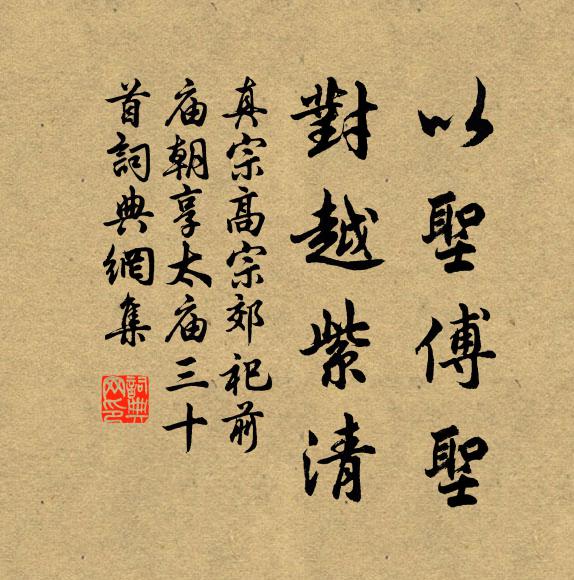 以聖傅聖
對越紫清
真宗高宗郊祀前
庙朝享太庙三十
首詞典網集
詞典網印